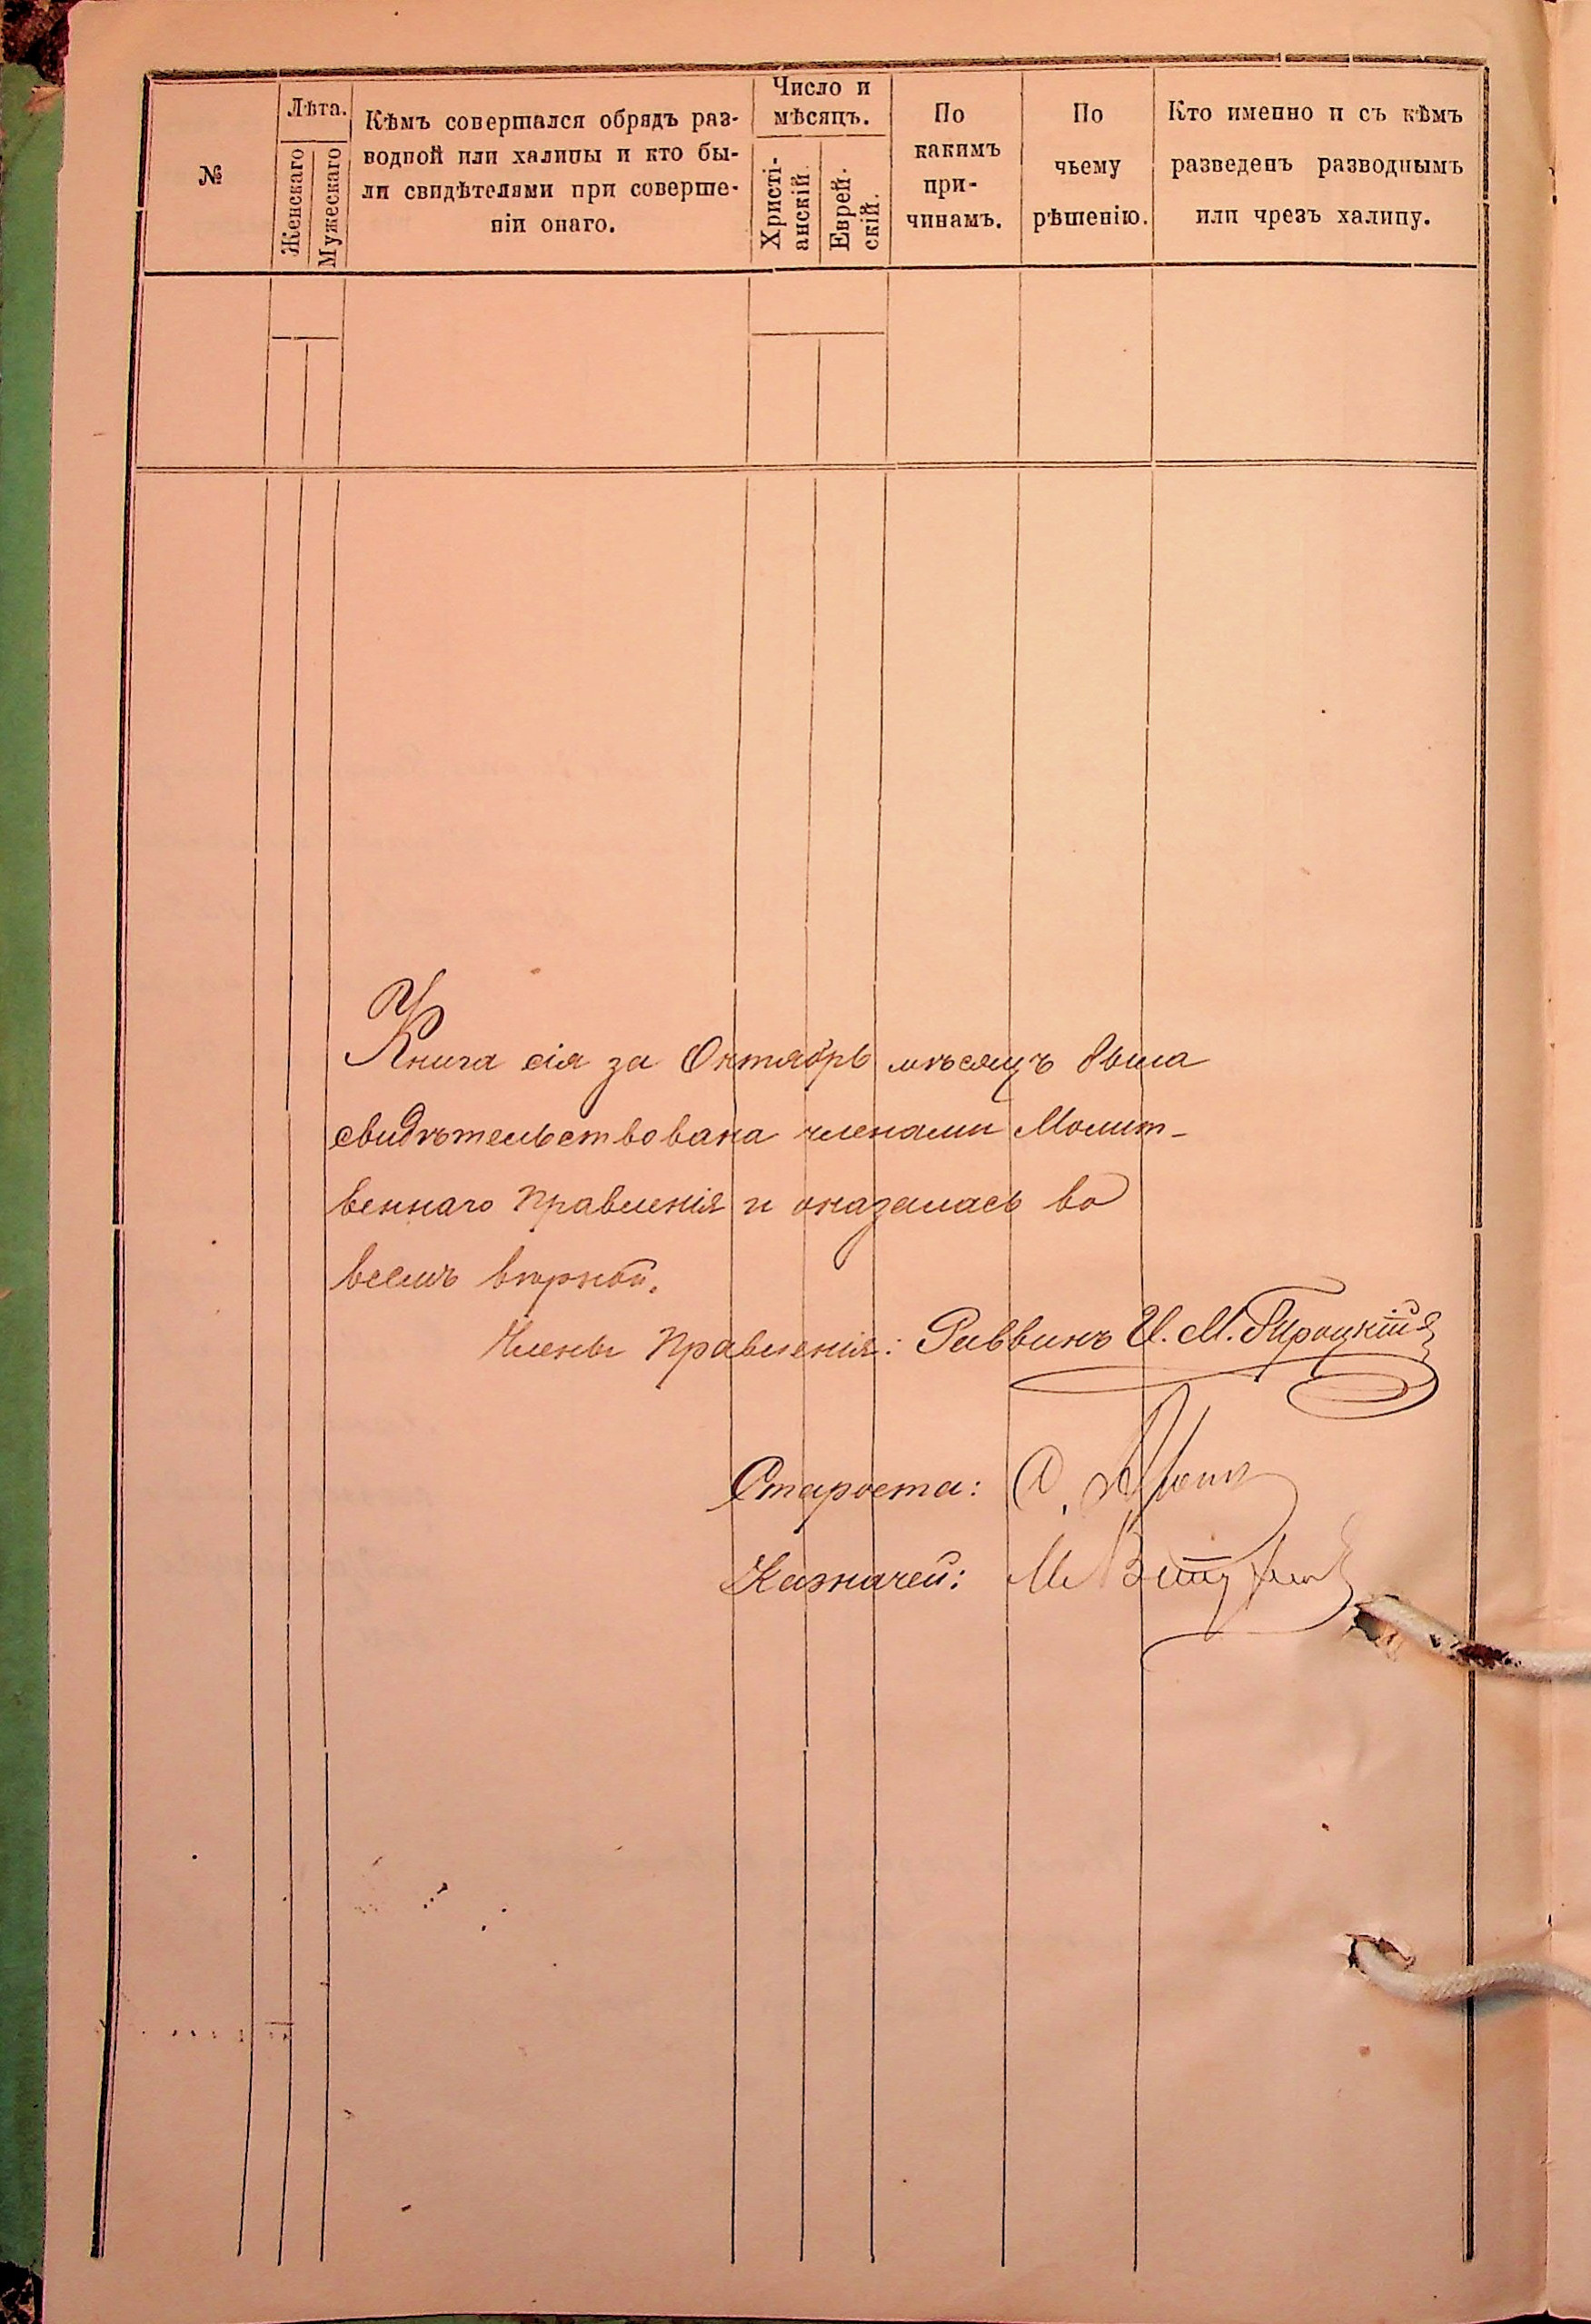 №
Лѣта.
Женскаго
Мужескаго
Кѣмъ совершался обрядъ раз-
водной или халицы и кто бы-
ли свидѣтелями при соверше-
ніи онаго.
Число и
мѣсяцъ.
Христі-
анскій.
Еврей-
скій.
По
какимъ
при-
чинамъ.
По
чьему
рѣшенію.
Кто именно и съ кѣмъ
разведенъ разводнымъ
или чрезъ халицу.
Книга сія за Октябрь мѣсяцъ была
свидѣтельствована членами Молит-
веннаго Правленія и оказалась во
всемъ вѣрной.
Члены Правленія: Раввинъ И. М.
Староста:
Казначей: М